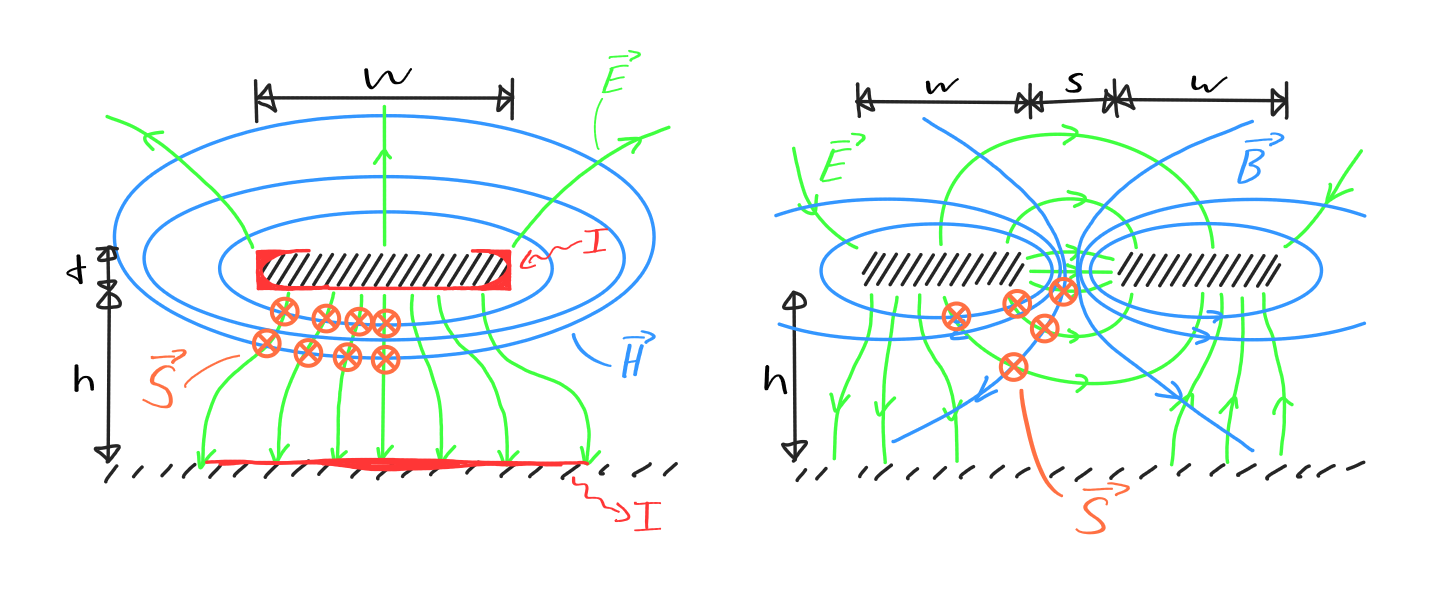 w
E
I
t
h
S
H
I
w
s
w
E
B
h
S